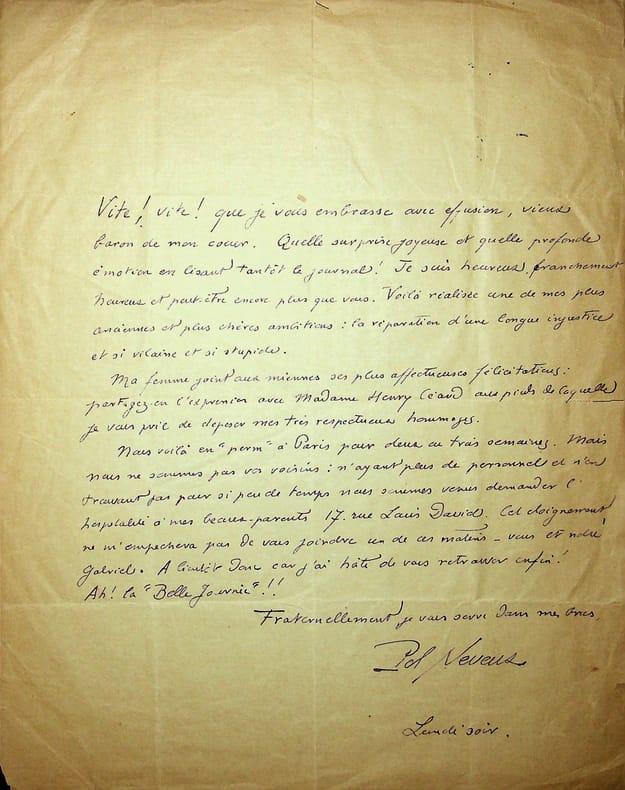 Vite! vite! que je vous embrasse avec effusion, vieux
baron de mon coeur. Quelle surprise joyeuse et quelle profonde
émotion en lisant tantôt le journal! Je suis heureux, franchement
heureux et peut-être encore plus que vous. Voilà réalisée une de mes plus
anciennes et plus chères ambitions: la réparation d'une longue injustice
et si vilaine et si stupide.
Ma femme joint aux miennes ses plus affectueuses félicitations:
partagez-en l'expression avec Madame Henry Céard aux pieds de laquelle
je vous prie de déposer mes très respectueux hommages.
Nous voilà en "perm" à Paris pour deux ou trois semaines. Mais
nous ne sommes pas vos voisins: n'ayant plus de personnel et n'en
trouvant pas pour si peu de temps nous sommes venus demander l'
hospitalité à mes beaux-parents 17. rue Louis David. Cet éloignement
ne m'empêchera pas de vous joindre un de ces matins - vous et notre
Gabriel. A bientôt donc car j'ai hâte de vous retrouver enfin!
Ah! la "Belle Journée"!!
Fraternellement, je vous serre dans mes bras,
Pol Neveux
Lundi soir.